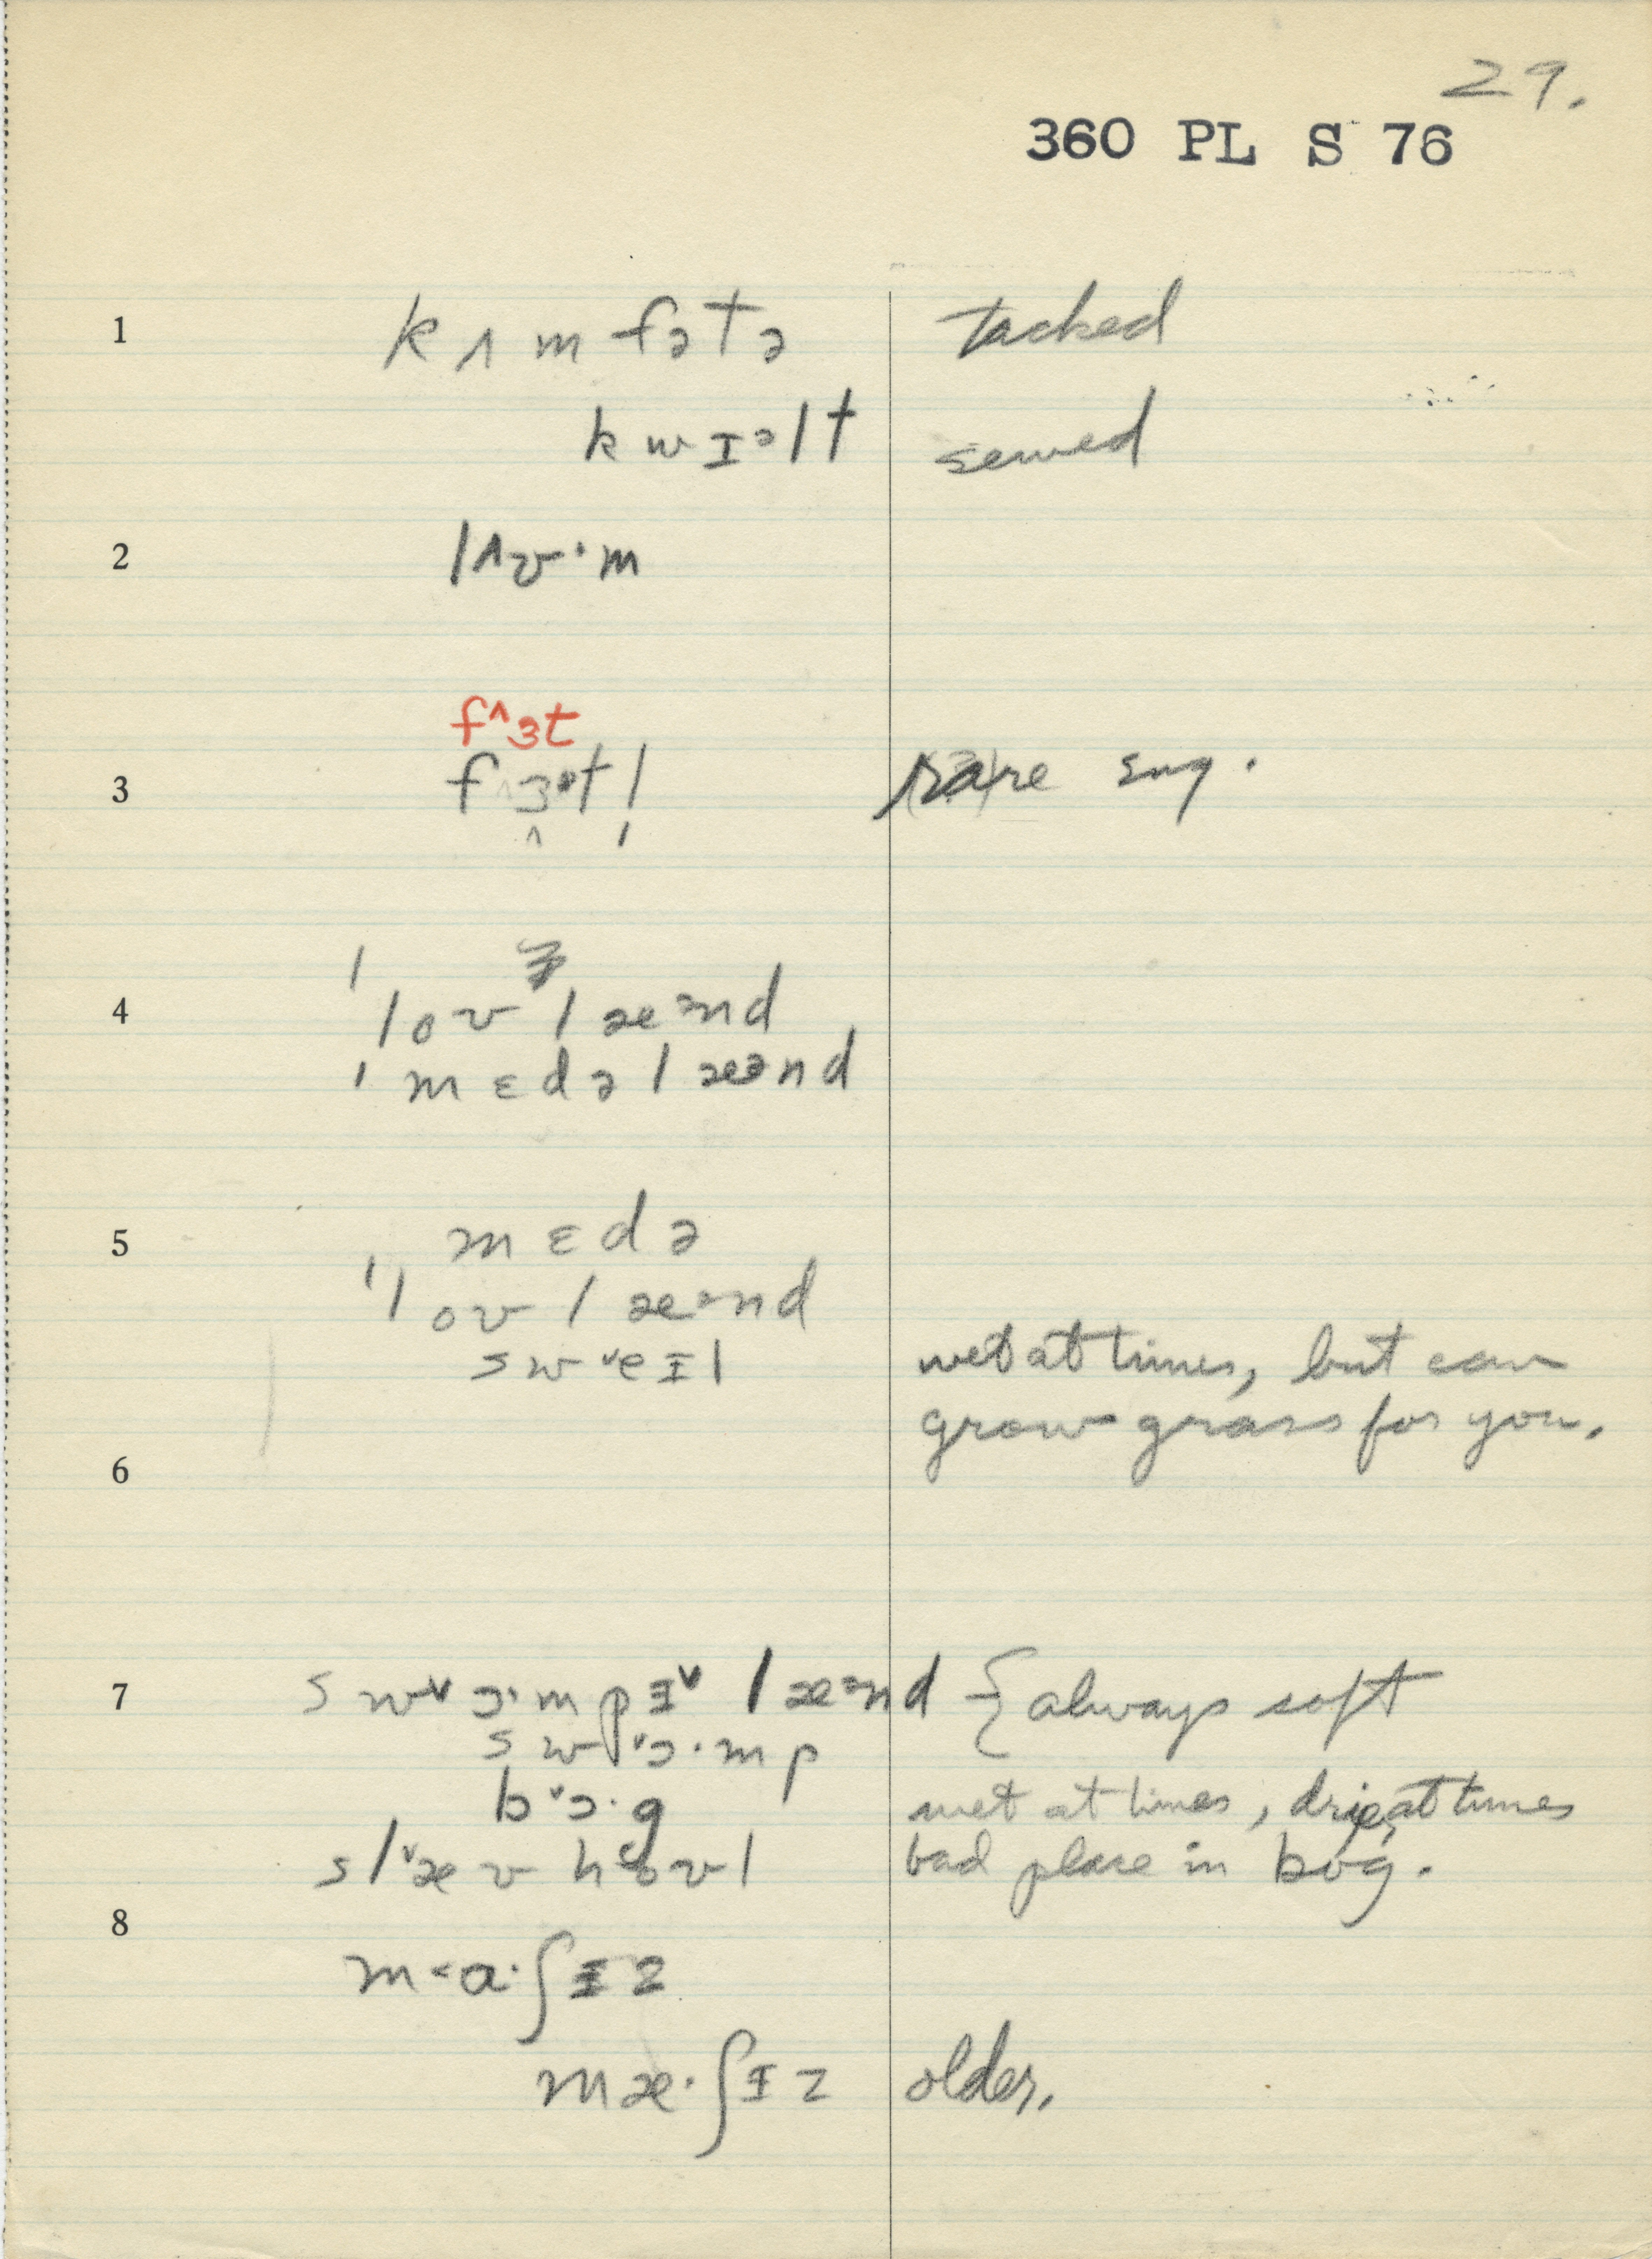 29.
360 PL S 76
1 kʌmfətə tacked
kwɪᵊlt sewed
2 lʌv·m
fʌ3t
3 rare sng.
4
ˈlov læᵊnd
ˈmɛdəlæᵊnd
5 mɛdə
ˈlov læᵊnd
swᵛeɪl wet at times, but can
grow grass for you.
6
7 swᵛɔ·mpɪᵛ læᵊnd { always soft
swᵛɔ·mp
bᵛɔ·g wet at times, drie at times
slᵛæv hovl bad place in bog.
8
m˂a·ʃɪz
mæ·ʃɪz older.